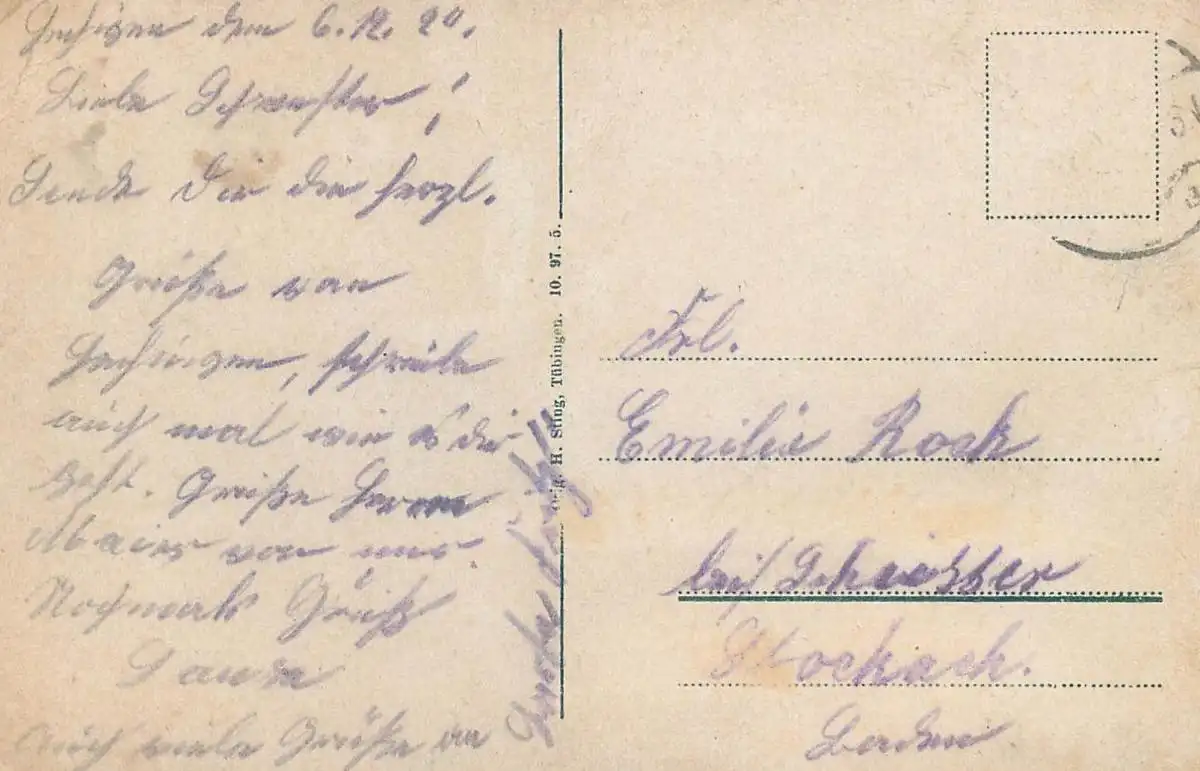 Hechingen den 6.12.20.
Liebe Schwester!
Sende Dir die herzl.
Grüße von
Hechingen, schreibe
auch mal wie es dir
geht. Grüße Herrn
Maier von mir
Nochmals Grüß
auch viele Grüße an
Orig. H. Sting, Tübingen. 10. 97. 5.
Frl.
Emilie Rock
bei
Stockach.
Baden